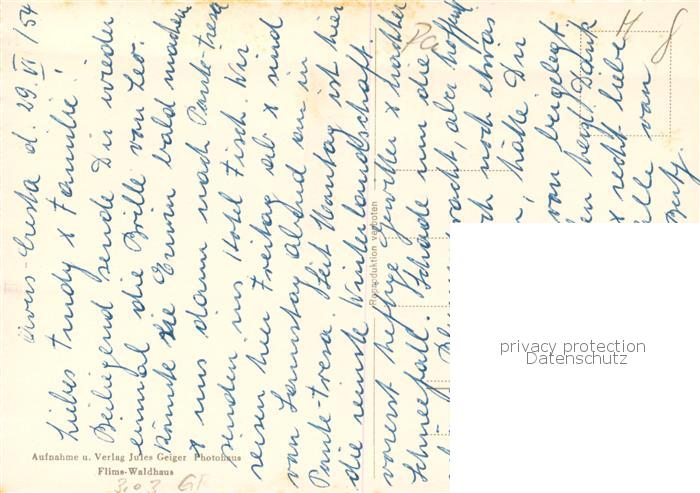 Avers-Cresta d. 29. VI /54
Liebes Trudy & Familie!
Beiliegend sende Dir wieder
einmal die Brille von Leo.
Könnte sie Erwin bald machen
& uns dann nach Ponte-Tresa
senden ins Hotel Fisch. Wir
reisen hier Freitag ab & sind
von Samstag Abend an in
Ponte-Tresa. Seit Montag ist hier
die reinste Winterlandschaft
vorerst heftige Gewitter & nachher
Schneefall. Schade um die
racht, aber
och noch etwas
hätte Dir
von beigelegt.
en herzl. Dank
& recht liebe
von
Berty.
Pa
H
8
Reproduktion verboten
Aufnahme u. Verlag Jules Geiger Photohaus
Flims-Waldhaus
privacy protection
Datenschutz